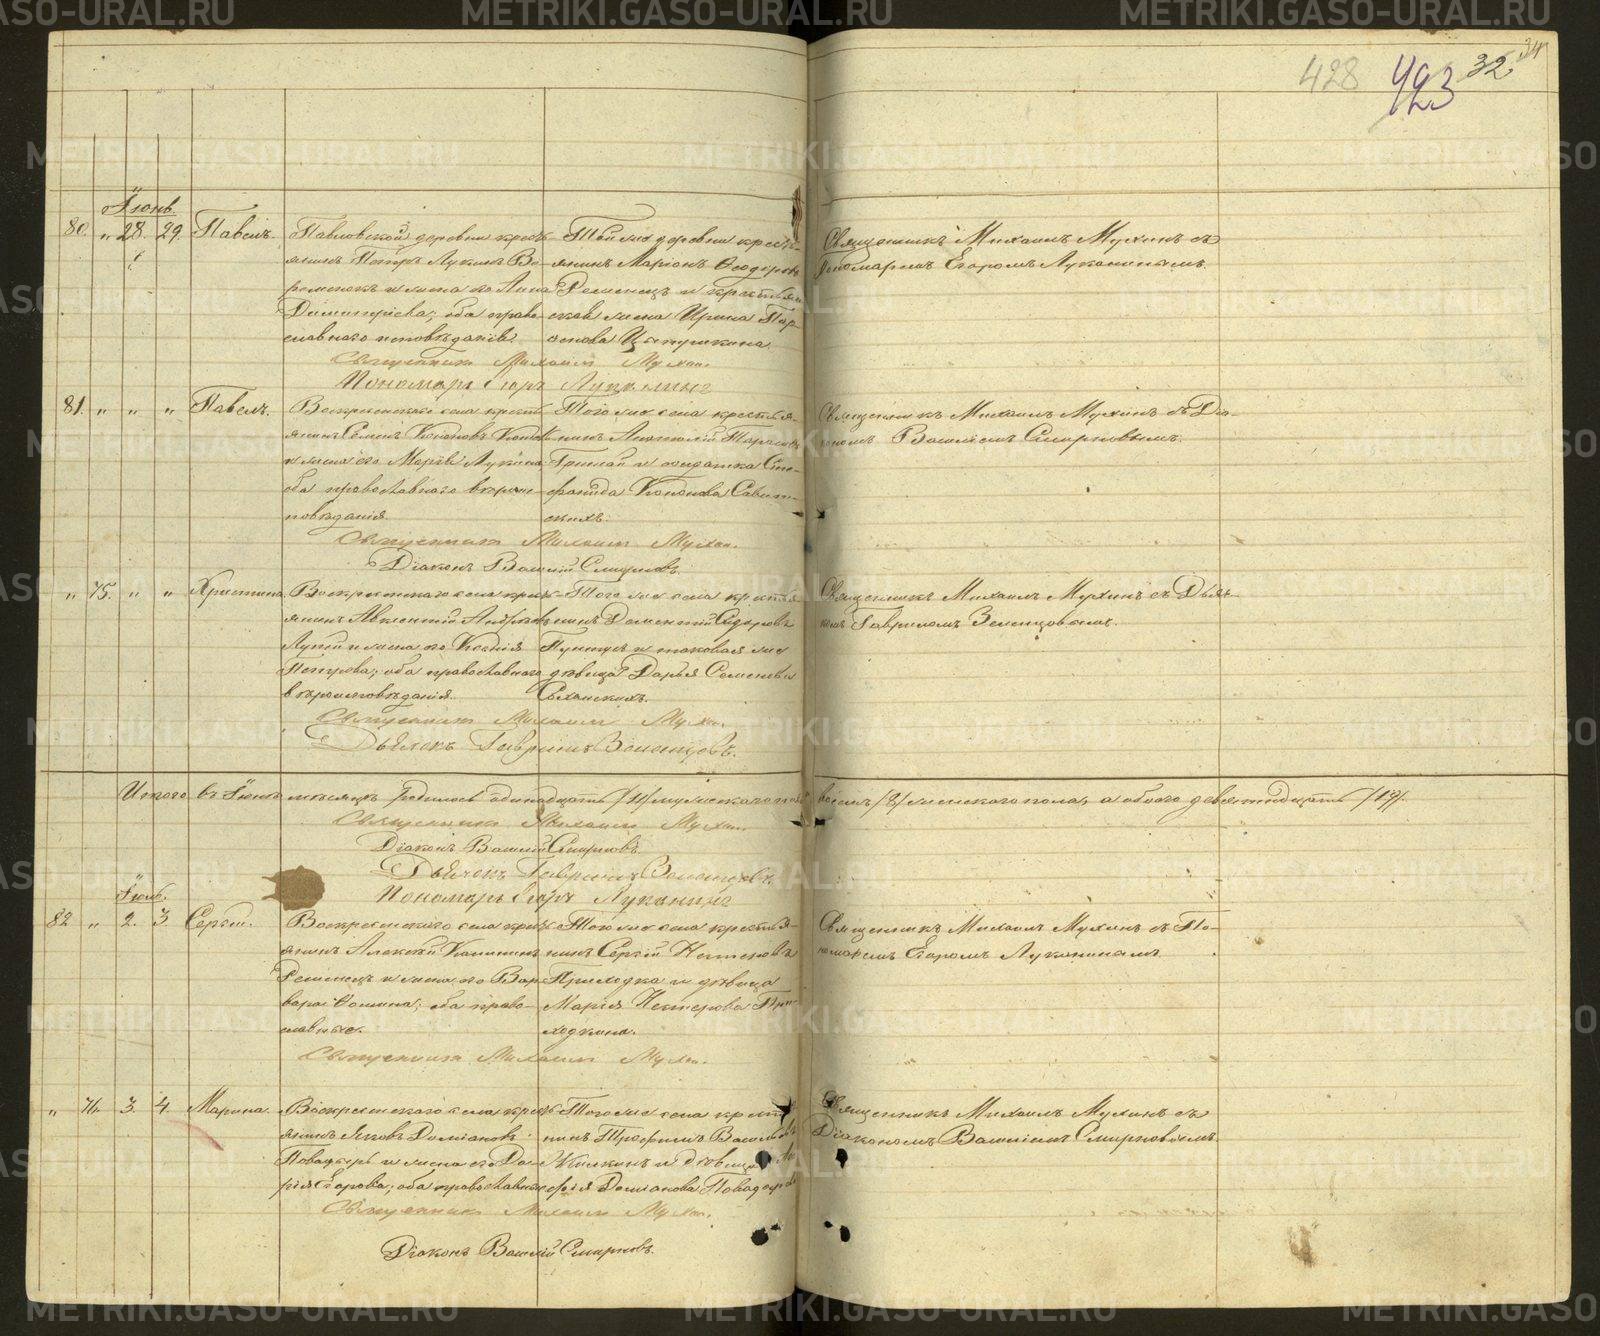 METRIKI.GASO-URAL.RU
428 423 32 34
Іюнь.
80. " 28. 29. Павелъ.
Павловской деревни кресть-
янинъ Петръ Лукинъ Во-
и жена его Анна
Димитріева; оба право-
славнаго исповѣданія.
Той же деревни кресть-
янинъ Маріонъ Ѳеодоровъ
Ременецъ и крестьян-
ская жена Ирина
Священникъ Михаилъ Мухинъ съ
Пономаремъ Егоромъ Луканинымъ.
Священник Михаил Мухин.
Пономарь Егоръ Луканинъ
81. " " " Павелъ.
Воскресенскаго села кресть-
янинъ Семенъ Кононовъ
и жена его Марѳа Лукина
оба православнаго вѣроис-
повѣданія.
Того же села крестья-
нинъ Анатолій
и солдатка Сте-
фанида Кононова Савин-
скихъ.
Священникъ Михаилъ Мухинъ съ Діа-
кономъ Василіемъ Смирновымъ.
Священник Михаил Мухин.
Діаконъ Василій Смирновъ.
" 75. " " Христина.
Воскресенскаго села кресть-
янинъ Авксентій
и жена его Ксенія
Петрова; оба православнаго
вѣроисповѣданія.
Того же села крестья-
нинъ Дометій Сидоровъ
и таковая же
дѣвица Дарья Семенова
Священникъ Михаилъ Мухинъ съ Дьяч-
комъ Гавриломъ Зеленцовымъ.
Священник Михаил Мухин.
Дьячекъ Гаврилъ Зеленцовъ.
Итого въ Іюнѣ мѣсяцѣ родилось одинадцать /11/ мужескаго пола
восемь /8/ женскаго пола, а обоего девятнадцать /19/.
Священник Михаил Мухин.
Діаконъ Василій Смирновъ.
Дьячекъ Гаврилъ Зеленцовъ.
Пономарь Егоръ Луканинъ
Іюль.
82 " 2. 3. Сергѣй.
Воскресенскаго села кресть-
янинъ Алексѣй
Ременецъ и жена его Вар-
вара Ѳомина; оба право-
славные.
Того же села крестья-
нинъ Сергѣй Нестеровъ
Приходка и дѣвица
Марія Нестерова При-
ходкина.
Священникъ Михаилъ Мухинъ съ По-
номаремъ Егоромъ Луканинымъ.
Священник Михаил Мухин.
" 76. 3. 4. Марина.
Воскресенскаго села кресть-
янинъ Яковъ Доміановъ
и жена его Да-
рія Егорова; оба православные
Того же села крестья-
нинъ Трофимъ Васильевъ
Жилкинъ и дѣвица Ма-
рія Доміанова
Священникъ Михаилъ Мухинъ съ
Діакономъ Василіемъ Смирновымъ.
Священник Михаил Мухин.
Діаконъ Василій Смирновъ.